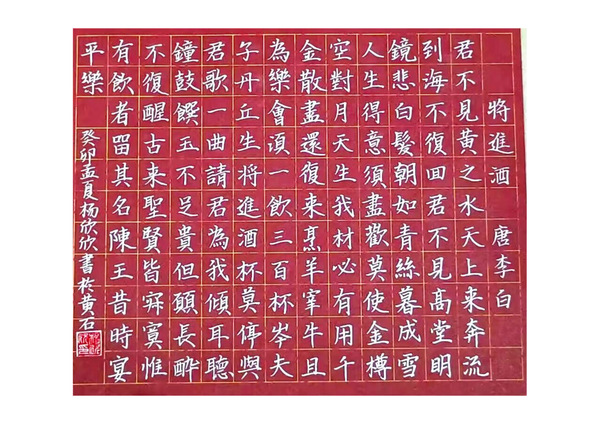 將進酒 唐 李白
君不見黃之水天上来奔流
到海不復回君不見髙堂明
鏡悲白髮朝如青絲暮成雪
人生得意須盡歡莫使金樽
空對月天生我材必有用千
金散盡還復来烹羊宰牛且
為樂會須一飲三百杯岑夫
子丹丘生将進酒杯莫停與
君歌一曲請君為我傾耳聽
鐘鼓饌玉不足貴但願長醉
不復醒古来聖賢皆寂寞惟
有飲者留其名陳王昔時宴
平樂
癸卯孟夏杨欣欣書於黄石